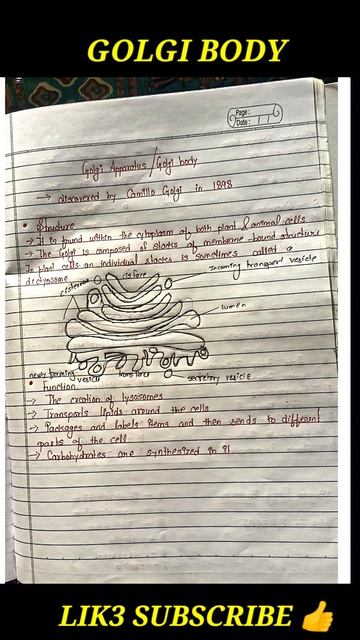 GOLGI BODY
Page:
Date:
Golgi Apparatus/Golgi body
→ discovered by Camillo Golgi in 1898
• Structure
→ It is found within the cytoplasm of both plant & animal cells
→ The Golgi is composed of stacks of membrane-bound structure
In plant cells an individual stacks is sometimes called a
dictyosome
cisternae
cis face
Incoming transport vesicle
lumen
newly forming
vesicle
trans face
secretory vesicle
• Function
→ The creation of lysosomes
→ Transports lipids around the cells
→ Packages and labels items and then sends to different
parts of the cell
→ Carbohydrates are synthesized in it
LIK3 SUBSCRIBE 👍